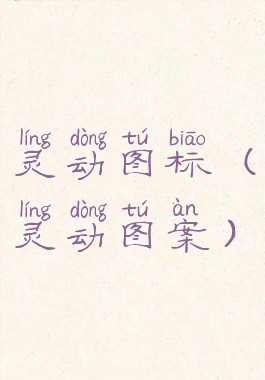 líng dòng tú biāo
灵动图标（
líng dòng tú àn
灵动图案）